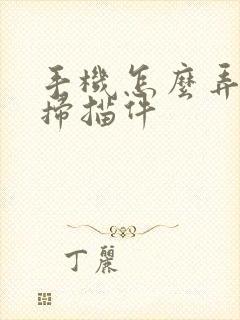 手機怎麼弄
掃描件
丁麗